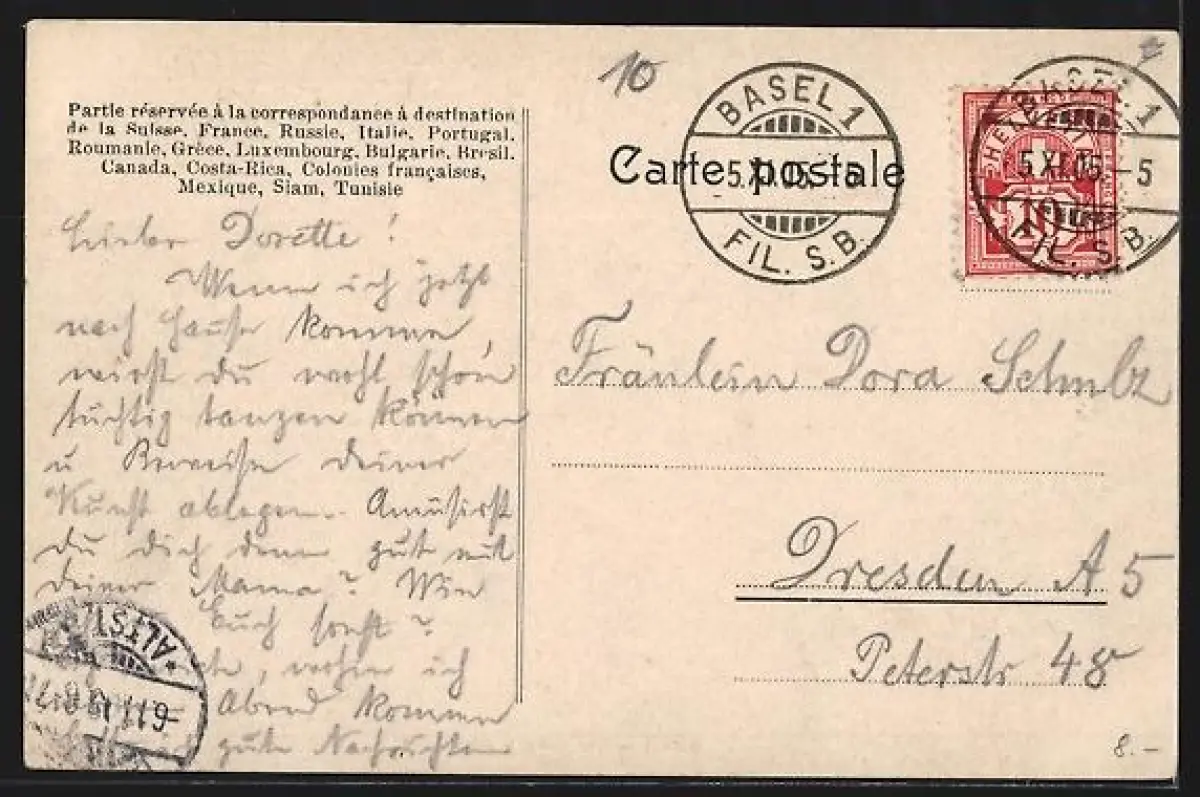 Partie réservée à la correspondance à destination
de la Suisse, France, Russie, Italie, Portugal,
Roumanie, Grèce, Luxembourg, Bulgarie, Bresil,
Canada, Costa-Rica, Colonies françaises,
Mexique, Siam, Tunisie
Liebe Dorette!
Wenn ich jetzt
nach Hause komme,
wirst du wohl schon
tüchtig tanzen können
u Beweise deiner
Kunst ablegen. Amüsirst
du dich denn gut mit
deiner Mama? Wie
Euch sonst?
, wohin ich
Abend komme
gute Nachrichten
ALTST
10
BASEL 1
5.XI.05.-5
FIL. S.B.
Carte postale
HELVETIA
10
BASEL 1
5.XI.05.-5
FIL. S.B.
Fräulein Dora Schulz
Dresden A 5
Peterstr 48
8.-